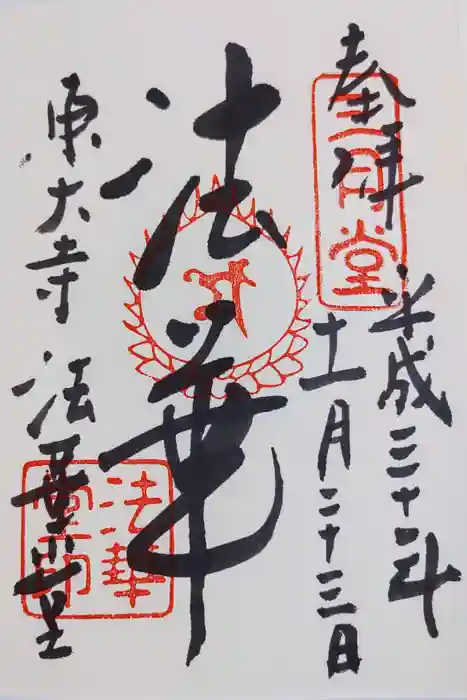 奉拝
三月堂
平成三十年
十一月二十三日
法華
東大寺 法華堂
法華堂印